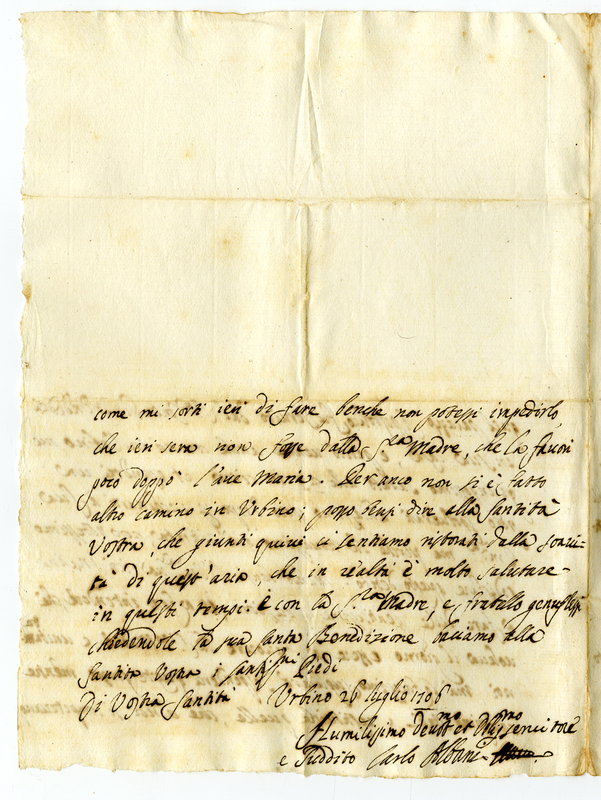 come mi sortì ieri di fare, benche non potessi impedirlo,
che ieri sera non fosse dalla S.ra Madre, che la favorì
poco doppò l'ave Maria. Per anco non si è fatto
altro camino in Urbino; posso dire alla Santità
Vostra, che giunti quivi ci sentiamo ristorati dalla soavi-
tà di quest'aria, che in realtà è molto salutare
in questi tempi. E con la S.ra Madre, e fratello genuflessi
chiedendole la sua santa Benedizione baciamo alla
Santità Vostra i santissimi Piedi
Di Vostra Santità Urbino 26 luglio 1706
Humilissimo Devotmo et servitore
e Suddito Carlo Albani